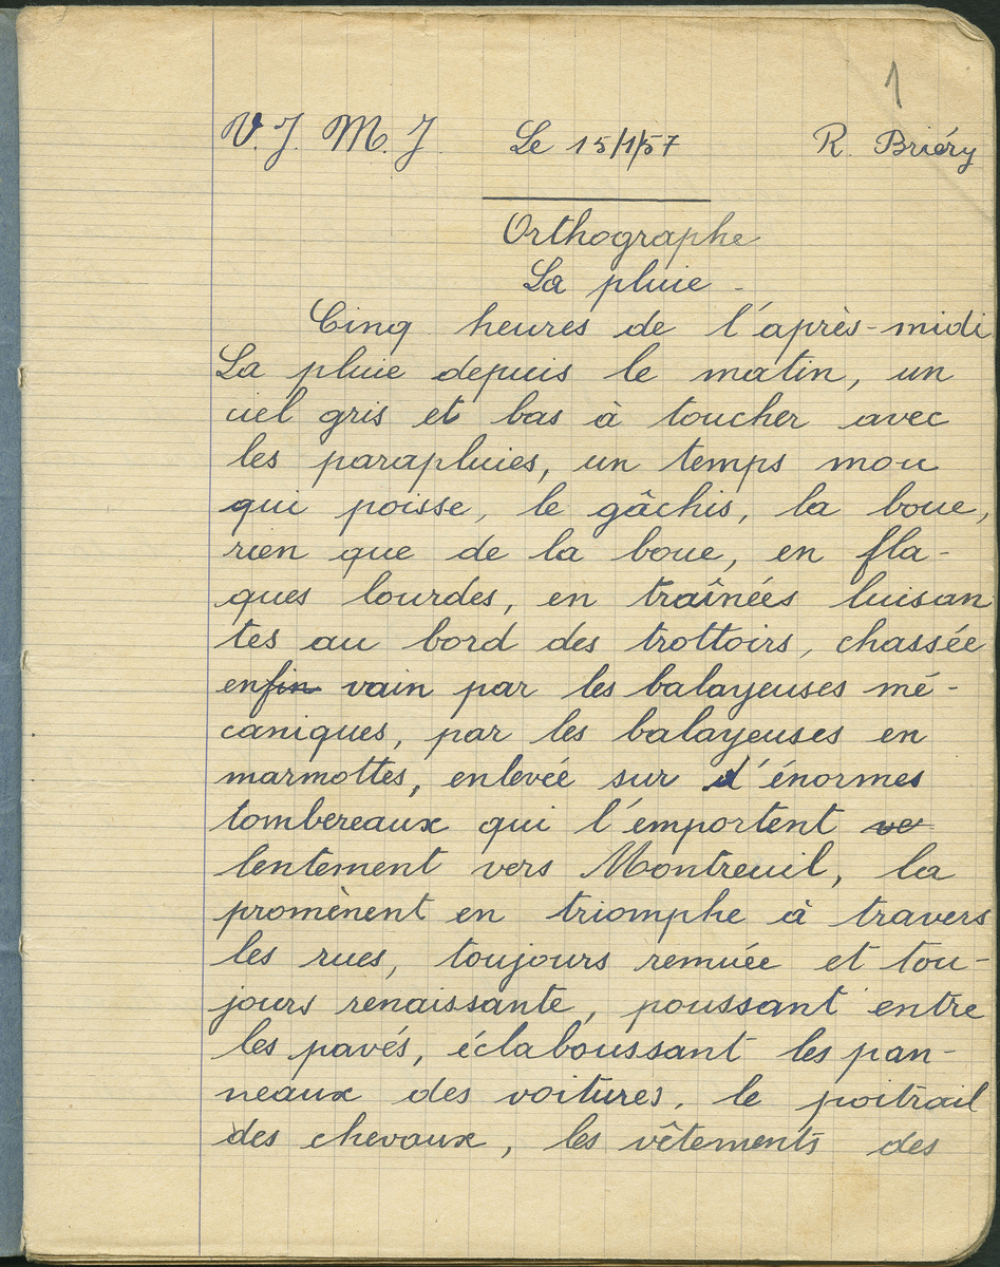 1
V. J. M. J. Le 15/1/57 R. Briéry
Orthographe
La pluie -
Cinq heures de l'après-midi
La pluie depuis le matin, un
ciel gris et bas à toucher avec
les parapluies, un temps mou
qui poisse, le gâchis, la boue,
rien que de la boue, en fla-
ques lourdes, en traînées luisan
tes au bord des trottoirs, chassée
enfin vain par les balayeuses mé-
caniques, par les balayeuses en
marmottes, enlevée sur d'énormes
tombereaux qui l'emportent ve
lentement vers Montreuil, la
promènent en triomphe à travers
les rues, toujours remuée et tou-
jours renaissante, poussant entre
les pavés, éclaboussant les pan-
neaux des voitures, le poitrail
des chevaux, les vêtements des